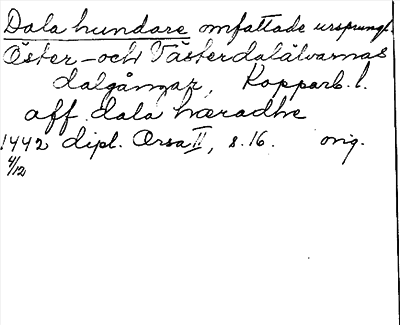 Dala hundare omfattade ursprungl.
Öster- och Västerdalälvarnas
dalgångar, Kopparb. l.
aff dala hæradhe
1442 dipl. Orsa II, s. 16. orig.
4/12